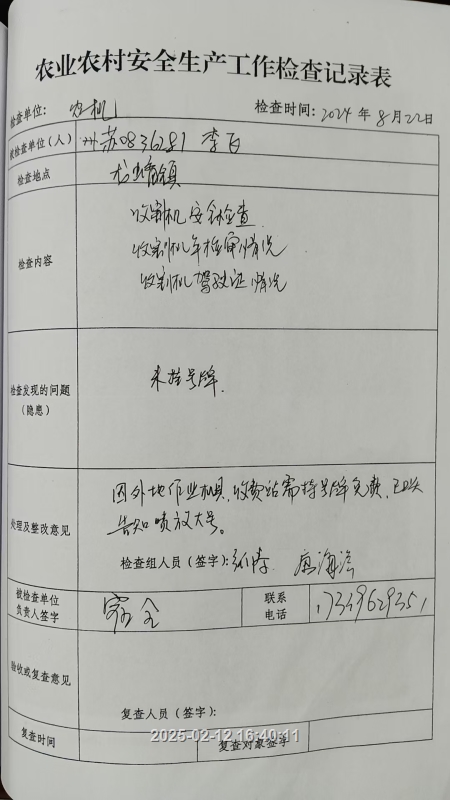 农业农村安全生产工作检查记录表
检查单位: 农机 检查时间: 2024 年 8 月 22日
被检查单位(人) 苏0836281 李
检查地点 镇
检查内容
收割机安全检查
收割机年检审情况
收割机驾驶证情况
检查发现的问题
(隐患)
未挂号牌.
处理及整改意见
因外地作业机具,收费站需持号牌免费,已
告知喷放大号。
检查组人员(签字):
被检查单位
负责人签字
联系
电话
验收或复查意见
复查人员(签字):
2025-02-12 16:40:11
复查时间 复查对象签字